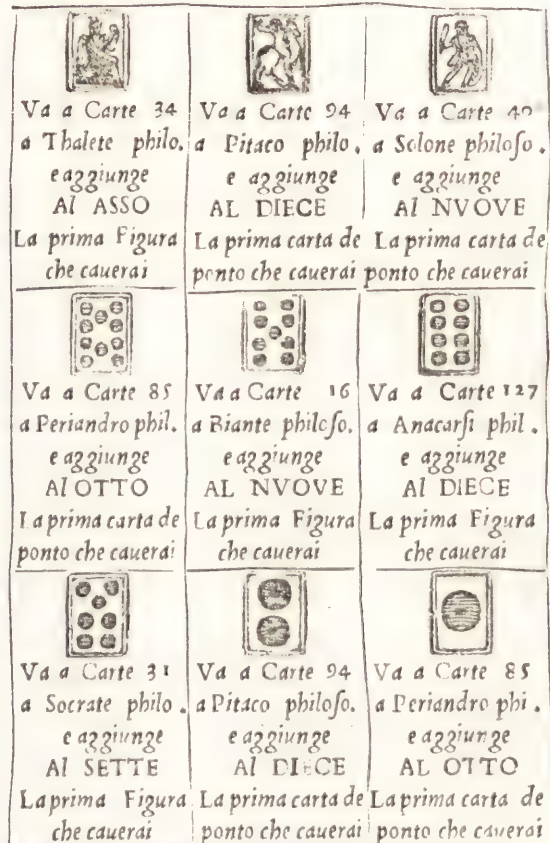 Va a Carte 34
a Thalete philo.
e aggiunge
Al ASSO
La prima Figura
che cauerai
Va a Carte 94
a Pitaco philo.
e aggiunge
AL DIECE
La prima carta de
ponto che cauerai
Va a Carte 40
a Solone philoſo.
e aggiunge
Al NVOVE
La prima carta de
ponto che cauerai
Va a Carte 85
a Periandro phil.
e aggiunge
Al OTTO
La prima carta de
ponto che cauerai
Va a Carte 16
a Biante philoſo.
e aggiunge
AL NVOVE
La prima Figura
che cauerai
Va a Carte 127
a Anacarſi phil.
e aggiunge
Al DIECE
La prima Figura
che cauerai
Va a Carte 31
a Socrate philo.
e aggiunge
Al SETTE
La prima Figura
che cauerai
Va a Carte 94
a Pitaco philoſo.
e aggiunge
Al DIECE
La prima carta de
ponto che cauerai
Va a Carte 85
a Periandro phi.
e aggiunge
AL OTTO
La prima carta de
ponto che cauerai